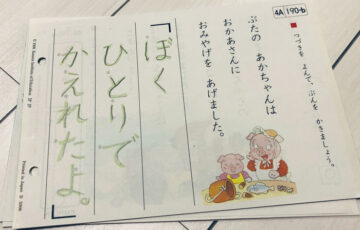 4A 190-b
つづきを よんで、ぶんを かきましょう。
ぶたの あかちゃんは
おかあさんに
おみやげを あげました。
「ぼく
ひとりで
かえれたよ。」